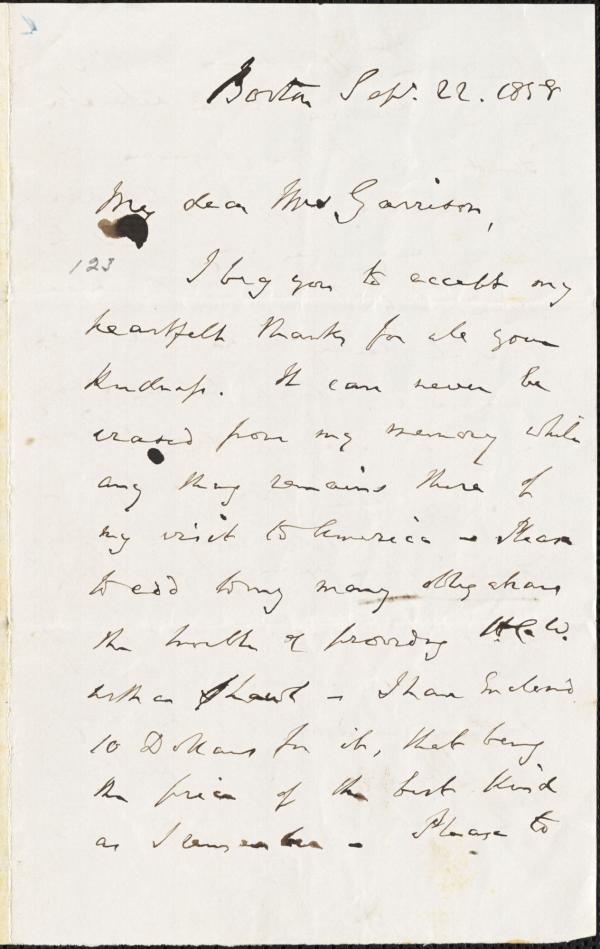 Boston Sept. 22. 1858
My dear Mrs Garrison,
123
I beg you to accept my
heartfelt thanks for all your
kindness. It can never be
erased from my memory while
any thing remains there of
my visit to America – Please
to add to my many obligations
the trouble of providing W.
with a shawl – I have enclosed
10 Dollars for it, that being
the price of the best kind
as I remember – Please to